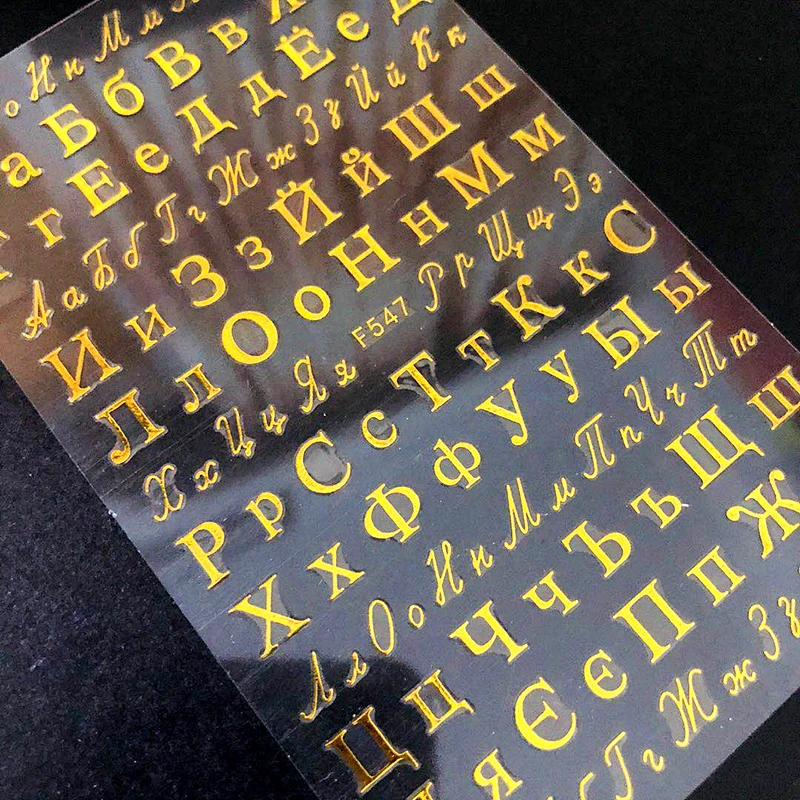 о Н н М м
а Б б В в
г Е е Д д Ё е
А а Б б Г г Ж ж З з Й й К к
И и З з Й й Ш ш
Л л О о Н н М м
Х х Ц ц Я я F547 Р р Щ щ Э э
Р р С с Т т К к С
Х х Ф ф У у Ы ы
Л л О о Н н М м П п Ч ч Т т
Ц ц Ч ч Ъ ъ Щ ш
я Є є П п Ж
Г г Ж ж З з